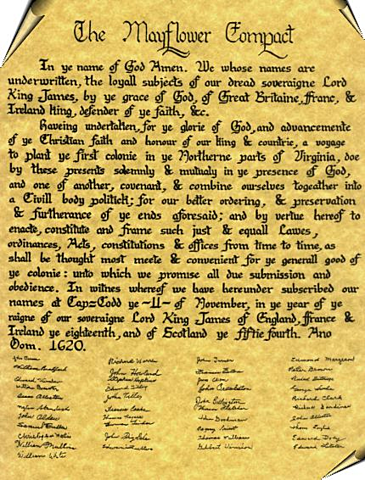 The Mayflower Compact
In ye name of God Amen. We whose names are
underwritten, the loyall subjects of our dread soveraigne Lord
King James, by ye grace of God, of Great Britaine, franc, &
Ireland king, defender of ye faith, &c.
Haveing undertaken, for ye glorie of God, and advancemente
of ye Christian faith and honour of our king & countrie, a voyage
to plant ye first colonie in ye Northerne parts of Virginia, doe
by these presents solemnly & mutualy in ye presence of God,
and one of another, covenant, & combine ourselves togeather into
a Civill body politick; for our better ordering, & preservation
& furtherance of ye ends aforesaid; and by vertue hereof to
enacte, constitute and frame such just & equall Lawes,
ordinances, Acts, constitutions & offices from time to time, as
shall be thought most meete & convenient for ye generall good of
ye colonie: unto which we promise all due submission and
obedience. In witnes whereof we have hereunder subscribed our
names at Cap=Codd ye ~11~ of November, in ye year of ye
raigne of our soveraigne Lord King James of England, france &
Ireland ye eighteenth, and of Scotland ye fiftie fourth. Ano
Dom. 1620.
John Turner
William Bradford John Howland Peter Brown
Edward Tilley
Isaac Allerton John Tilley Richard Clark
Francis Cooke
John Alden Thomas Rogers John Allerton
Samuel Fuller Thomas Tinker
John Rigdale Thomas Williams Edward Doty
William Mullins Edward Fuller Gilbert Winslow
William White